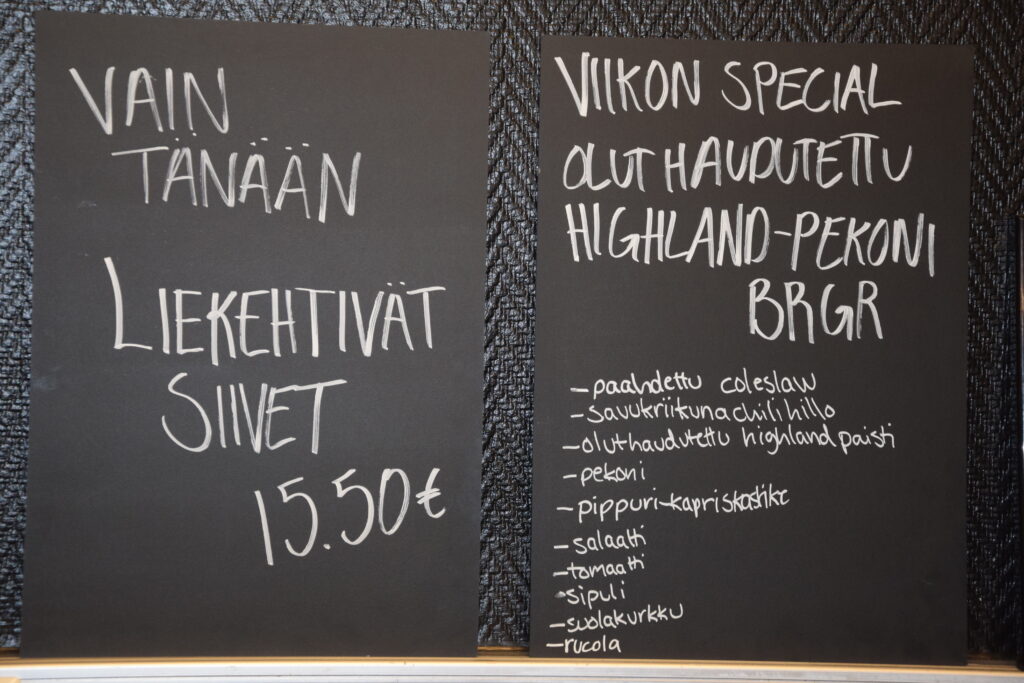 VAIN
TÄNÄÄN
LIEKEHTIVÄT
SIIVET
15.50€
VIIKON SPECIAL
OLUT HAUDUTETTU
HIGHLAND-PEKONI
BRGR
-paahdettu coleslaw
-savukriikunachilihillo
-oluthaudutettu highlandpaisti
-pekoni
-pippuri-kapriskastike
-salaatti
-tomaatti
-sipuli
-suolakurkku
-rucola